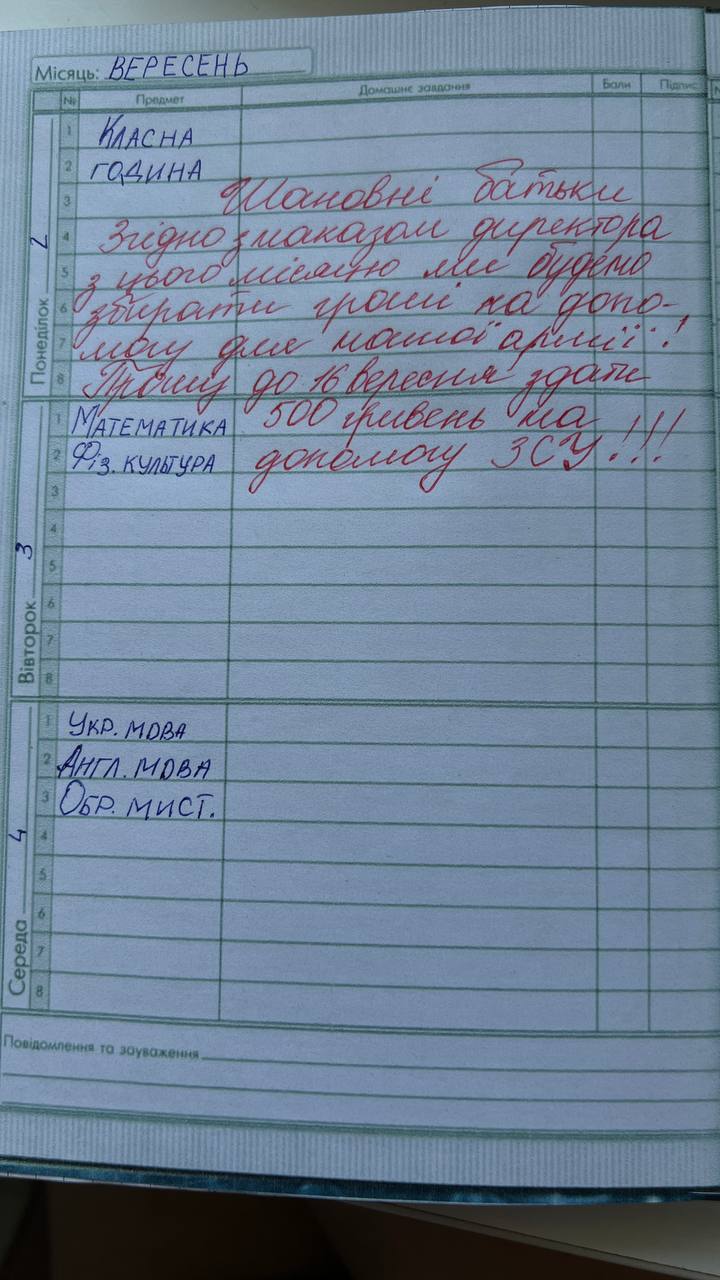 Місяць: ВЕРЕСЕНЬ
№ Предмет Домашнє завдання Бали Підпис
Понеділок 2
1 КЛАСНА
2 ГОДИНА
3 Шановні батьки
4 Згідно з наказом директора
5 з цього місяцю ми будемо
6 збирати гроші на допо-
7 могу для нашої армії!
8 Прошу до 16 вересня здати
Вівторок 3
1 МАТЕМАТИКА 500 гривень на
2 ФІЗ. КУЛЬТУРА допомогу ЗСУ!!!
3
4
5
6
7
8
Середа 4
1 УКР. МОВА
2 АНГЛ. МОВА
3 ОБР. МИСТ.
4
5
6
7
8
Повідомлення та зауваження